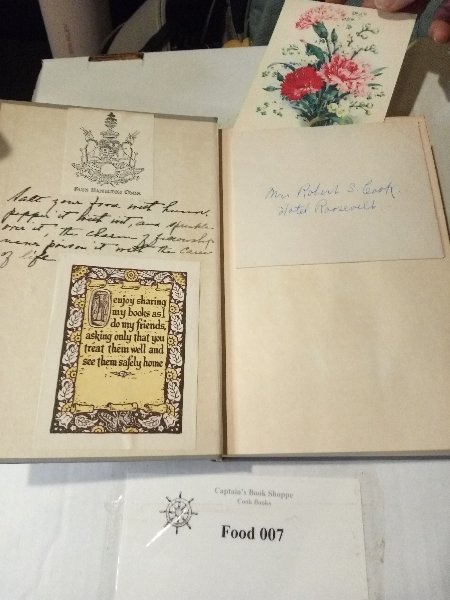 Fay's Hamilton Cook
Salt your food with humor,
pepper it with wit, and sprinkle
over it, the charm of fellowship
never poison it with the cares
of life
I enjoy sharing
my books as I
do my friends,
asking only that you
treat them well and
see them safely home
Mrs Robert S. Cook.
Hotel Roosevelt
Captain's Book Shoppe
Cook Books
Food 007